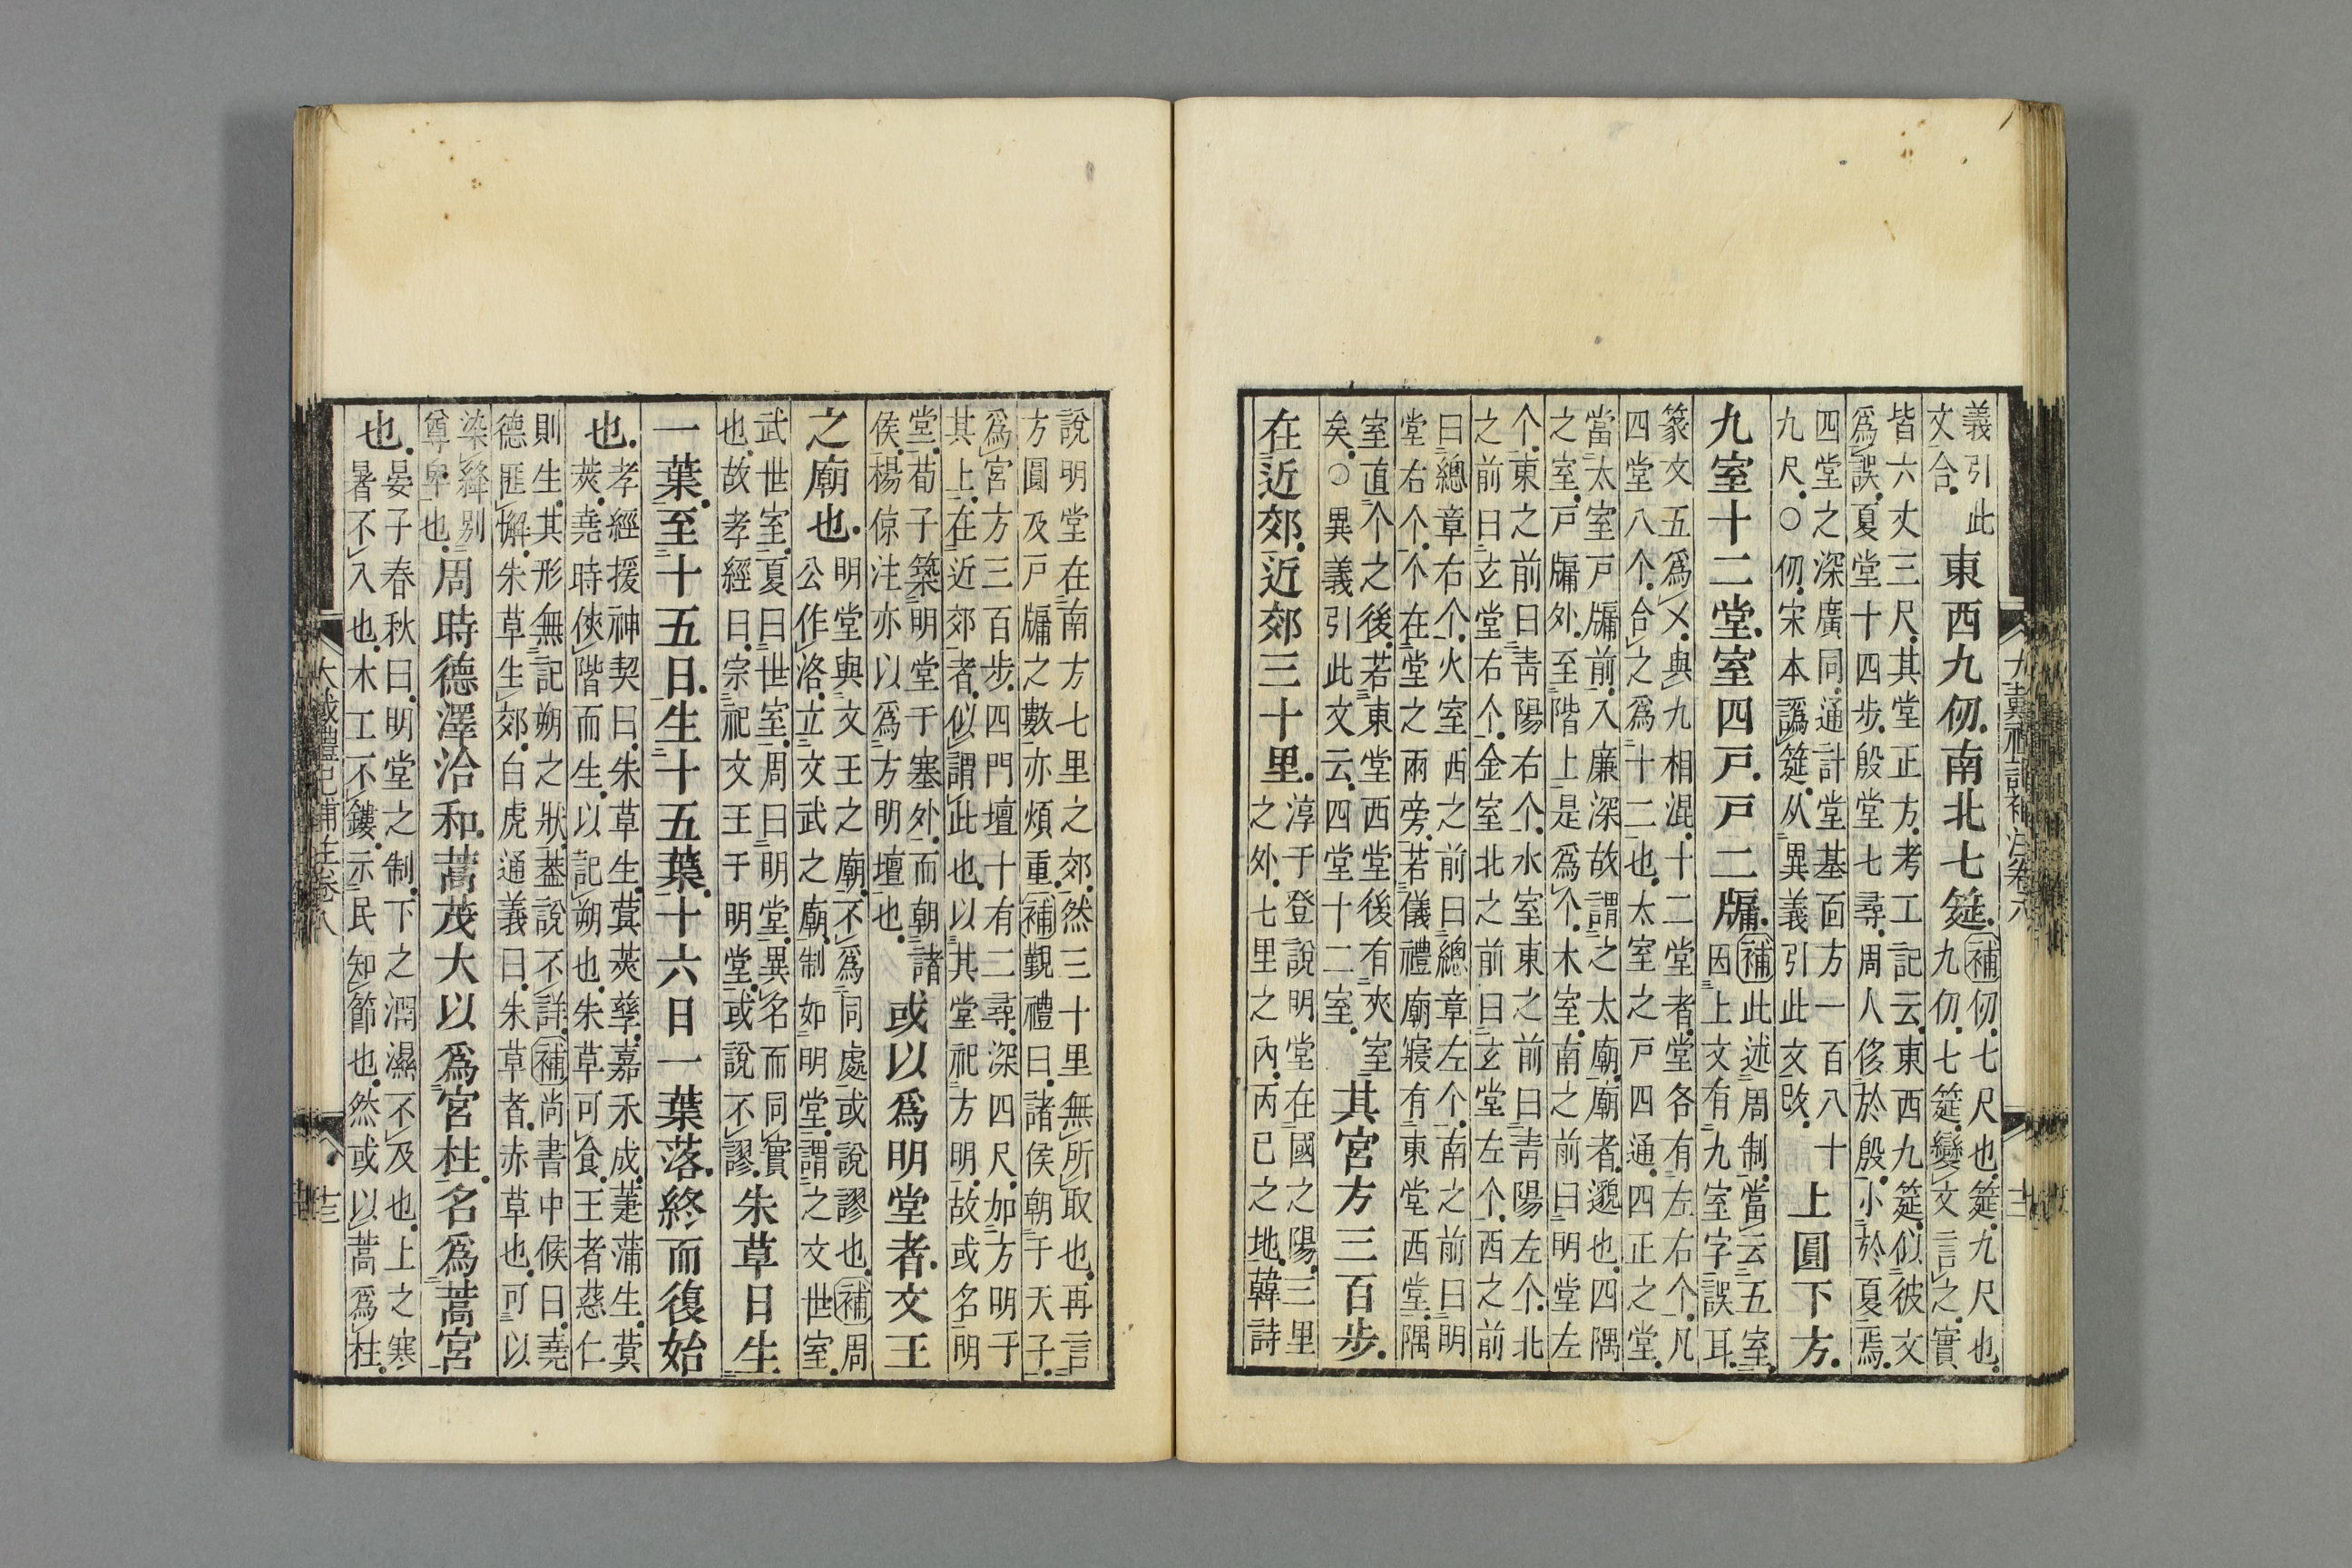 義引此
文合
東西九仞南北七筵
補仞七尺也筵九尺也
九仞七筵變文言之實
皆六丈三尺其堂正方考工記云東西九筵似彼文
爲誤夏堂十四步殷堂七尋周人侈於殷小於夏焉
四堂之深廣同通計堂基面方一百八十
九尺○仞宋本譌筵从異義引此文改
上圓下方
九室十二堂室四戶戶二牖
補此述周制當云五室
因上文有九室字誤耳
篆文五爲㐅與九相混十二堂者堂各有左右个凡
四堂八个合之爲十二也太室之戶四通四正之堂
當太室戶牖前入廉深故謂之太廟廟者邈也四隅
之室戶牖外至階上是爲个木室南之前曰明堂左
个東之前曰青陽右个水室東之前曰青陽左个北
之前曰玄堂右个金室北之前曰玄堂左个西之前
曰總章右个火室西之前曰總章左个南之前曰明
堂右个个在堂之兩旁若儀禮廟寢有東堂西堂隅
室直个之後若東堂西堂後有夾室
矣○異義引此文云四堂十二室
其宮方三百步
在近郊近郊三十里
淳于登說明堂在國之陽三里
之外七里之內丙巳之地韓詩
說明堂在南方七里之郊然三十里無所取也再言
方圓及戶牖之數亦煩重補覲禮曰諸侯朝于天子
爲宮方三百步四門壇十有二尋深四尺加方明于
其上在近郊者似謂此也以其堂祀方明故或名明
堂荀子築明堂于塞外而朝諸
侯楊倞注亦以爲方明壇也
或以爲明堂者文王
之廟也
明堂與文王之廟不爲同處或說謬也補周
公作洛立文武之廟制如明堂謂之文世室
武世室夏曰世室周曰明堂異名而同實
也故孝經曰宗祀文王于明堂或說不謬
朱草日生
一葉至十五日生十五葉十六日一葉落終而復始
也
孝經援神契曰朱草生蓂莢孳嘉禾成萐蒲生蓂
莢堯時俠階而生以記朔也朱草可食王者慈仁
則生其形無記朔之狀蓋說不詳補尚書中候曰堯
德匪懈朱草生郊白虎通義曰朱草者赤草也可以
染絳别
尊卑也
周時德澤洽和蒿茂大以爲宮柱名爲蒿宮
也
晏子春秋曰明堂之制下之潤濕不及也上之寒
暑不入也木工不鏤示民知節也然或以蒿爲柱